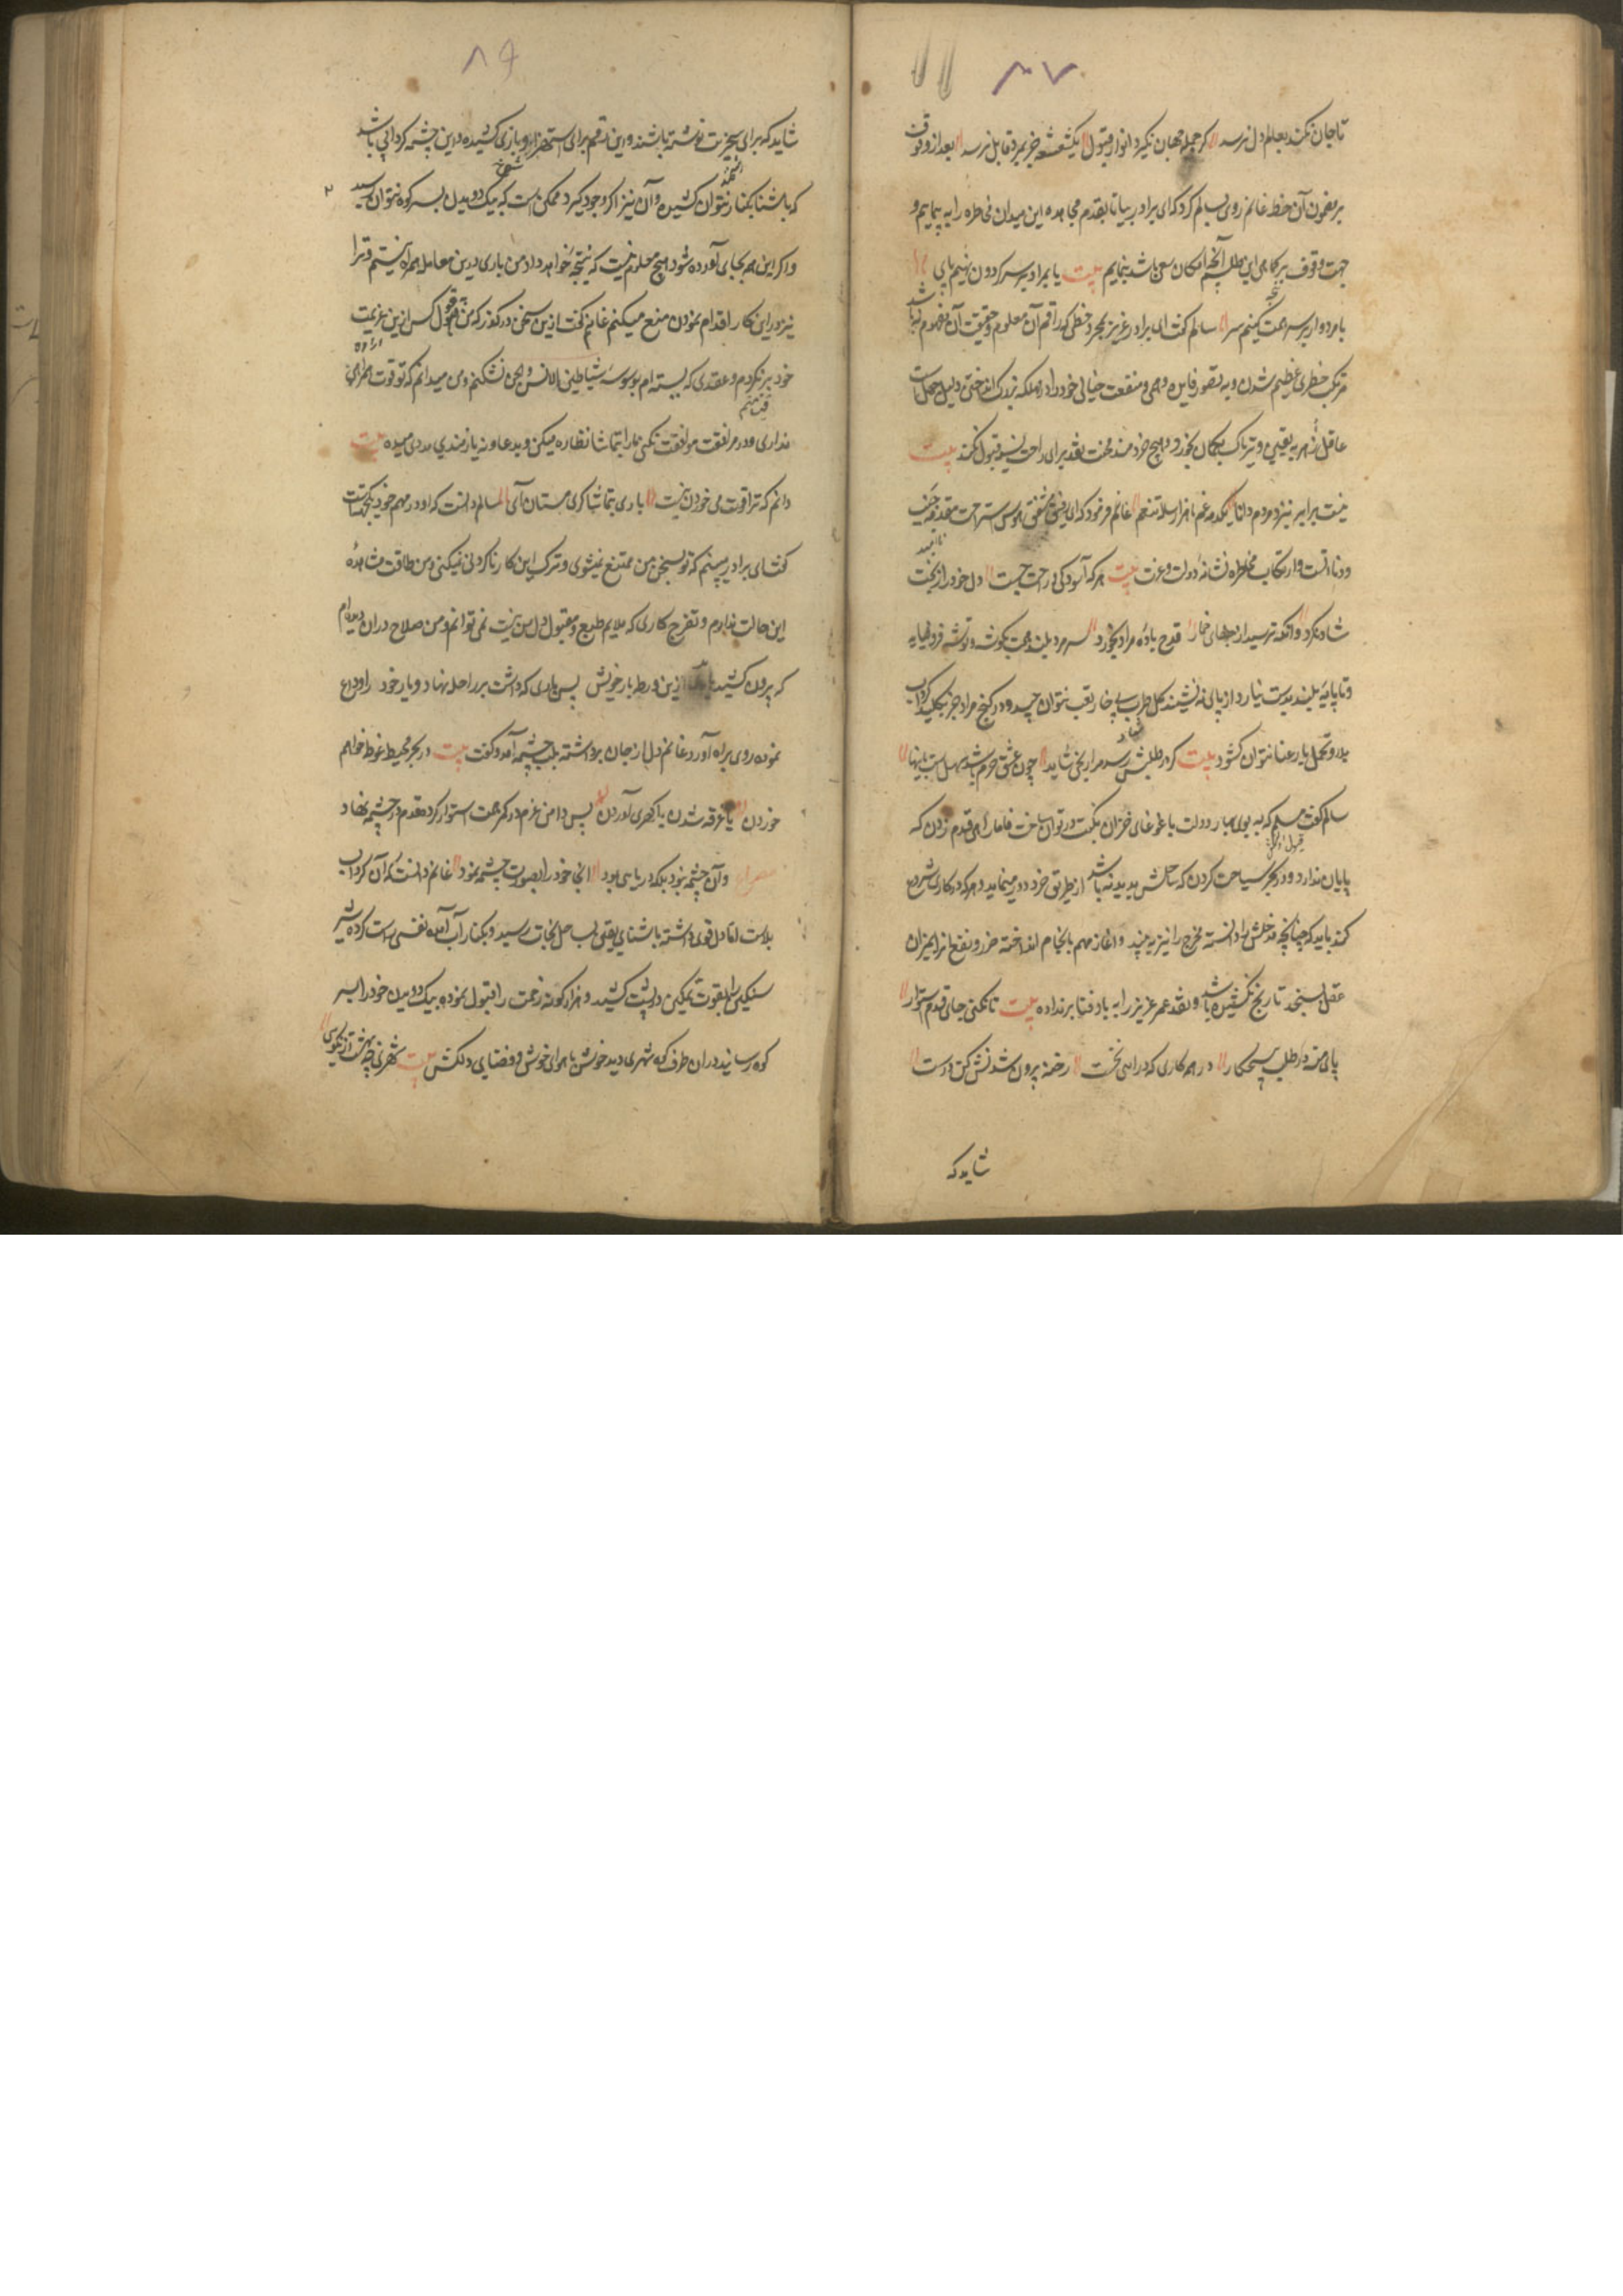 ۸۷
تا جان نکند بعلم دل نرسد گر جمله جهان نکیرد انوار قبول یکشعشعه جز بمرد قابل نرسد بعد از وقوف
بر مضمون آن خط غانم روی بسالم کرد که ای برادر بیا تا بقدم مجاهده این میدان مخاطره را به پیماییم و
جهت وقوف بر کماهی این طلسم آنچه امکان سعی باشد بنماییم بیت یا بمراد بر سر کردون نهیم پای
یا مرد وار بر سر همت کنیم سر سالم کفت ای برادر عزیز بمجرد خطی که راقم آن معلوم و حقیقت آن مفهوم نباشد
مرتکب خطری عظیم شدن و به تصور فایده وهمی و منفعت خیالی خود را در مهلکه بزرک انداختن دلیل جهل است
عاقل زهر به یقین و تریاک بکمان نخورد و هیچ خردمند محنت نقد برای راحت نسیه قبول نکند بیت
نیست برابر بنزد مردم دانا یکدمه غم با هزار ساله تنعم غانم فرمود که ای رفیق مشفق هوس استراحت مقدمه خست
و دنائتست و ارتکاب مخاطره نشانه دولت و عزت بیت هر که آسودکی و راحت جست دل خود را ز بخت
شاد نکرد وانکه ترسید از جفای خمار قدح باده مراد نخورد مرد بلند همت بکوشه و توشه فرو نیاید
و تا پایه بلند بدست نیارد از پای ننشیند کل طرب بی خار تعب نتوان چید و در کنج مراد جز بکلید
سالم کفت مسلم که به بوی بهار دولت با غوغای خزان نکبت در توان ساخت فاما راهی قدم زدن که
پایان ندارد و در بحری سیاحت کردن که ساحلش پدید نباشد از طریق خرد دور مینماید و هر که در کاری شروع
کند باید که چنانچه مدخلش را دانسته مخرج را نیز به بیند و از آغاز مهم بانجام انداخته ضرر و نفع آنرا بمیزان
عقل بسنجد تا رنج نکشیده باشد و نقد عمر عزیز را به باد فنا بر نداده بیت تا نکنی جای قدم استوار
پای منه در طلب هیچ کار در همه کاری که درآیی نخست رخنه بیرون شدنش کن درست
شاید که
۸۶
شاید که برای سخریت نوشته باشند و این رقم برای استهزا و بازی کشیده و این چشمه کردابی باشد
که باشنا بکنار نتوان کشید و آن نیز اکر وجود کیرد ممکن است که بیک دویدن بسر کوه نتوان رسید
و اکر این هم بجای آورده شود هیچ معلوم نیست که نتیجه خواهد داد من باری درین معامله همراه نیستم و ترا
نیز در این کار اقدام نمودن منع میکنم غانم کفت ازین سخن در کذر که من بقول کس ازین عزیمت
خود برنکردم و عقدی که بسته ام بوسوسه شیاطین الانس و الجن نشکنم و من میدانم که تو قوت همراهی
نداری و در مرافقت موافقت نکنی بمارا بتماشا نظاره میکن و بدعا و نیازمندی مددی میده بیت
دانم که ترا قوت می خوردن نیست باری بتماشا کری مستان آی سالم دانست که او در مهم خود یکجهت است
کفت ای برادر میبینم که تو بسخن من ممتنع نمیشوی و ترک این کار ناکردنی نمیکنی و من طاقت مشاهده
این حالت ندارم و تفرج کاری که ملایم طبع و مقبول دل من نیست نمی توانم و من صلاح در آن دیده ام
که بیرون کشید باید ازین ورطه بار خویش پس باری که داشت بر راحله نهاد و یار خود را وداع
نموده روی براه آورد غانم دل از جان برداشته بلب چشمه آمد و کفت بیت در بحر محیط غوطه خواهم
خوردن یا غرقه شدن یا کهری آوردن پس دامن عزم در کمر همت استوار کرد و قدم در چشمه نهاد
مصراع وان چشمه نبود بلکه دریایی بود انجا خود را بصورت چشمه نمود غانم دانست که آن کرداب
بلاست اما دل قوی داشته باشنای یقین بساحل نجات رسید و بکنار آب آمده نفسی راست کرده شیر
سنکین را بقوت تمکین در پشت کشید و هزار کونه زحمت را قبول نموده بیک دویدن خود را بسر
کوه رسانید در ان طرف که شهری دید خوش با هوای خوش و فضایی دلکش بیت شهری چو بهشت از نکویی